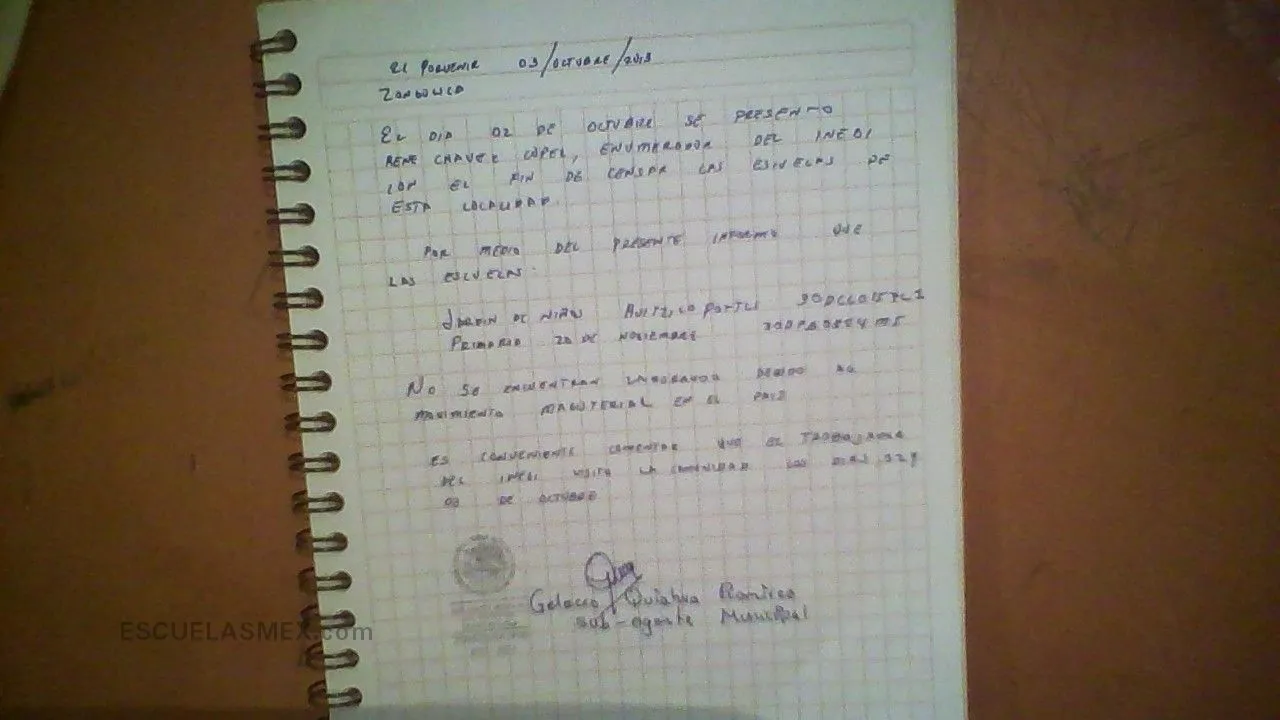 El Porvenir 03/octubre/2013
Zongolica
El dia 02 de octubre se presento
Rene Chavez Lopez, enumerador del INEGI
con el fin de censar las escuelas de
esta localidad.
Por medio del presente informo que
las escuelas:
Jardin de niños
Primaria 20 de noviembre
No se encuentran laborando debido al
movimiento magisterial en el pais
Es conveniente comentar que el trabajador
del INEGI visito la comunidad los dias 02 y
03 de octubre
Quiahua Ramirez
Sub-agente Municipal
ESCUELASMEX.com